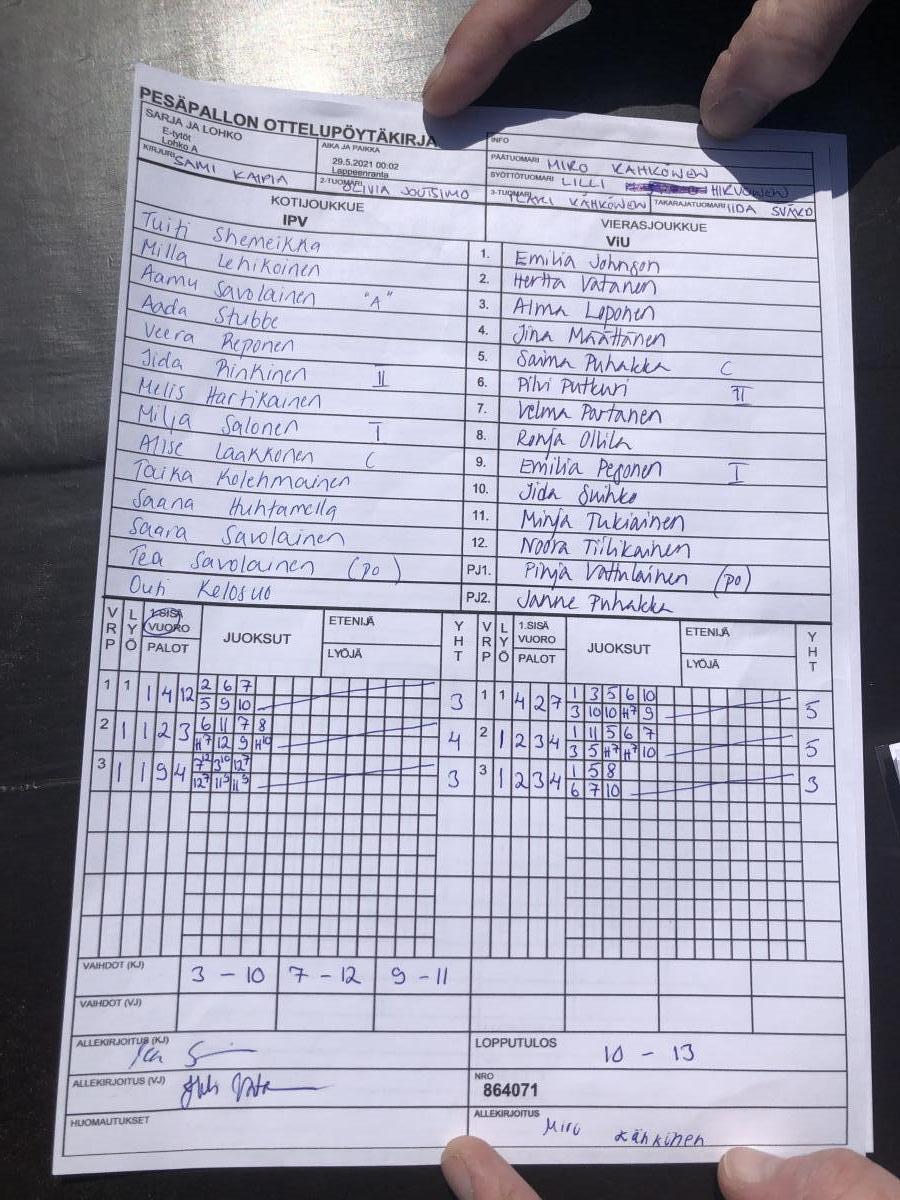 PESÄPALLON OTTELUPÖYTÄKIRJA
SARJA JA LOHKO
E-tytöt
Lohko A
AIKA JA PAIKKA
29.5.2021 00:02
Lappeenranta
INFO
PÄÄTUOMARI MIRO KÄHKÖNEN
SYÖTTÖTUOMARI LILLI HIRVONEN
KIRJURI SAMI KAIPIA
2-TUOMARI OLIVIA JOUTSIMO
3-TUOMARI KÄHKÖNEN TAKARAJATUOMARI IIDA SVÄRD
KOTIJOUKKUE
IPV
VIERASJOUKKUE
ViU
Tuiti Shemeikka 1. Emilia Johnson
Milla Lehikoinen 2. Hertta Vatanen
Aamu Savolainen "A" 3. Alma Loponen
Aada Stubbe 4. Jina Määttänen
Veera Reponen 5. Saima Puhakka C
Jida Rinkinen II 6. Pilvi Putkuri II
Melis Hartikainen 7. Velma Partanen
Milja Salonen I 8. Ronja Ollila
Alise Laakkonen C 9. Emilia Pesonen I
Taika Kolehmainen 10. Jida Suihko
Saana Huhtamella 11. Minja Tukiainen
Saara Savolainen 12. Noora Tiilikainen
Tea Savolainen (po) PJ1. Pinja Vattulainen (po)
Outi Kelosuo PJ2. Janne Puhakka
VRP LYÖ 1.SISÄ VUORO PALOT JUOKSUT ETENIJÄ LYÖJÄ YHT VRP LYÖ 1.SISÄ VUORO PALOT JUOKSUT ETENIJÄ LYÖJÄ YHT
1 1 1 4 12 2 6 7 3 1 1 4 2 7 1 3 5 6 10 5
5 9 10 3 10 10 H7 9
2 1 1 2 3 6 11 7 8 4 2 1 2 3 4 1 11 5 6 7 5
H7 12 9 H10 3 5 H7 H7 10
3 1 1 9 4 712 310 127 3 3 1 2 3 4 1 5 8 3
127 115 115 6 7 10
VAIHDOT (KJ) 3 - 10 7 - 12 9 - 11
VAIHDOT (VJ)
ALLEKIRJOITUS (KJ)
LOPPUTULOS 10 - 13
ALLEKIRJOITUS (VJ)
NRO
864071
HUOMAUTUKSET
ALLEKIRJOITUS
Miro Kähkönen